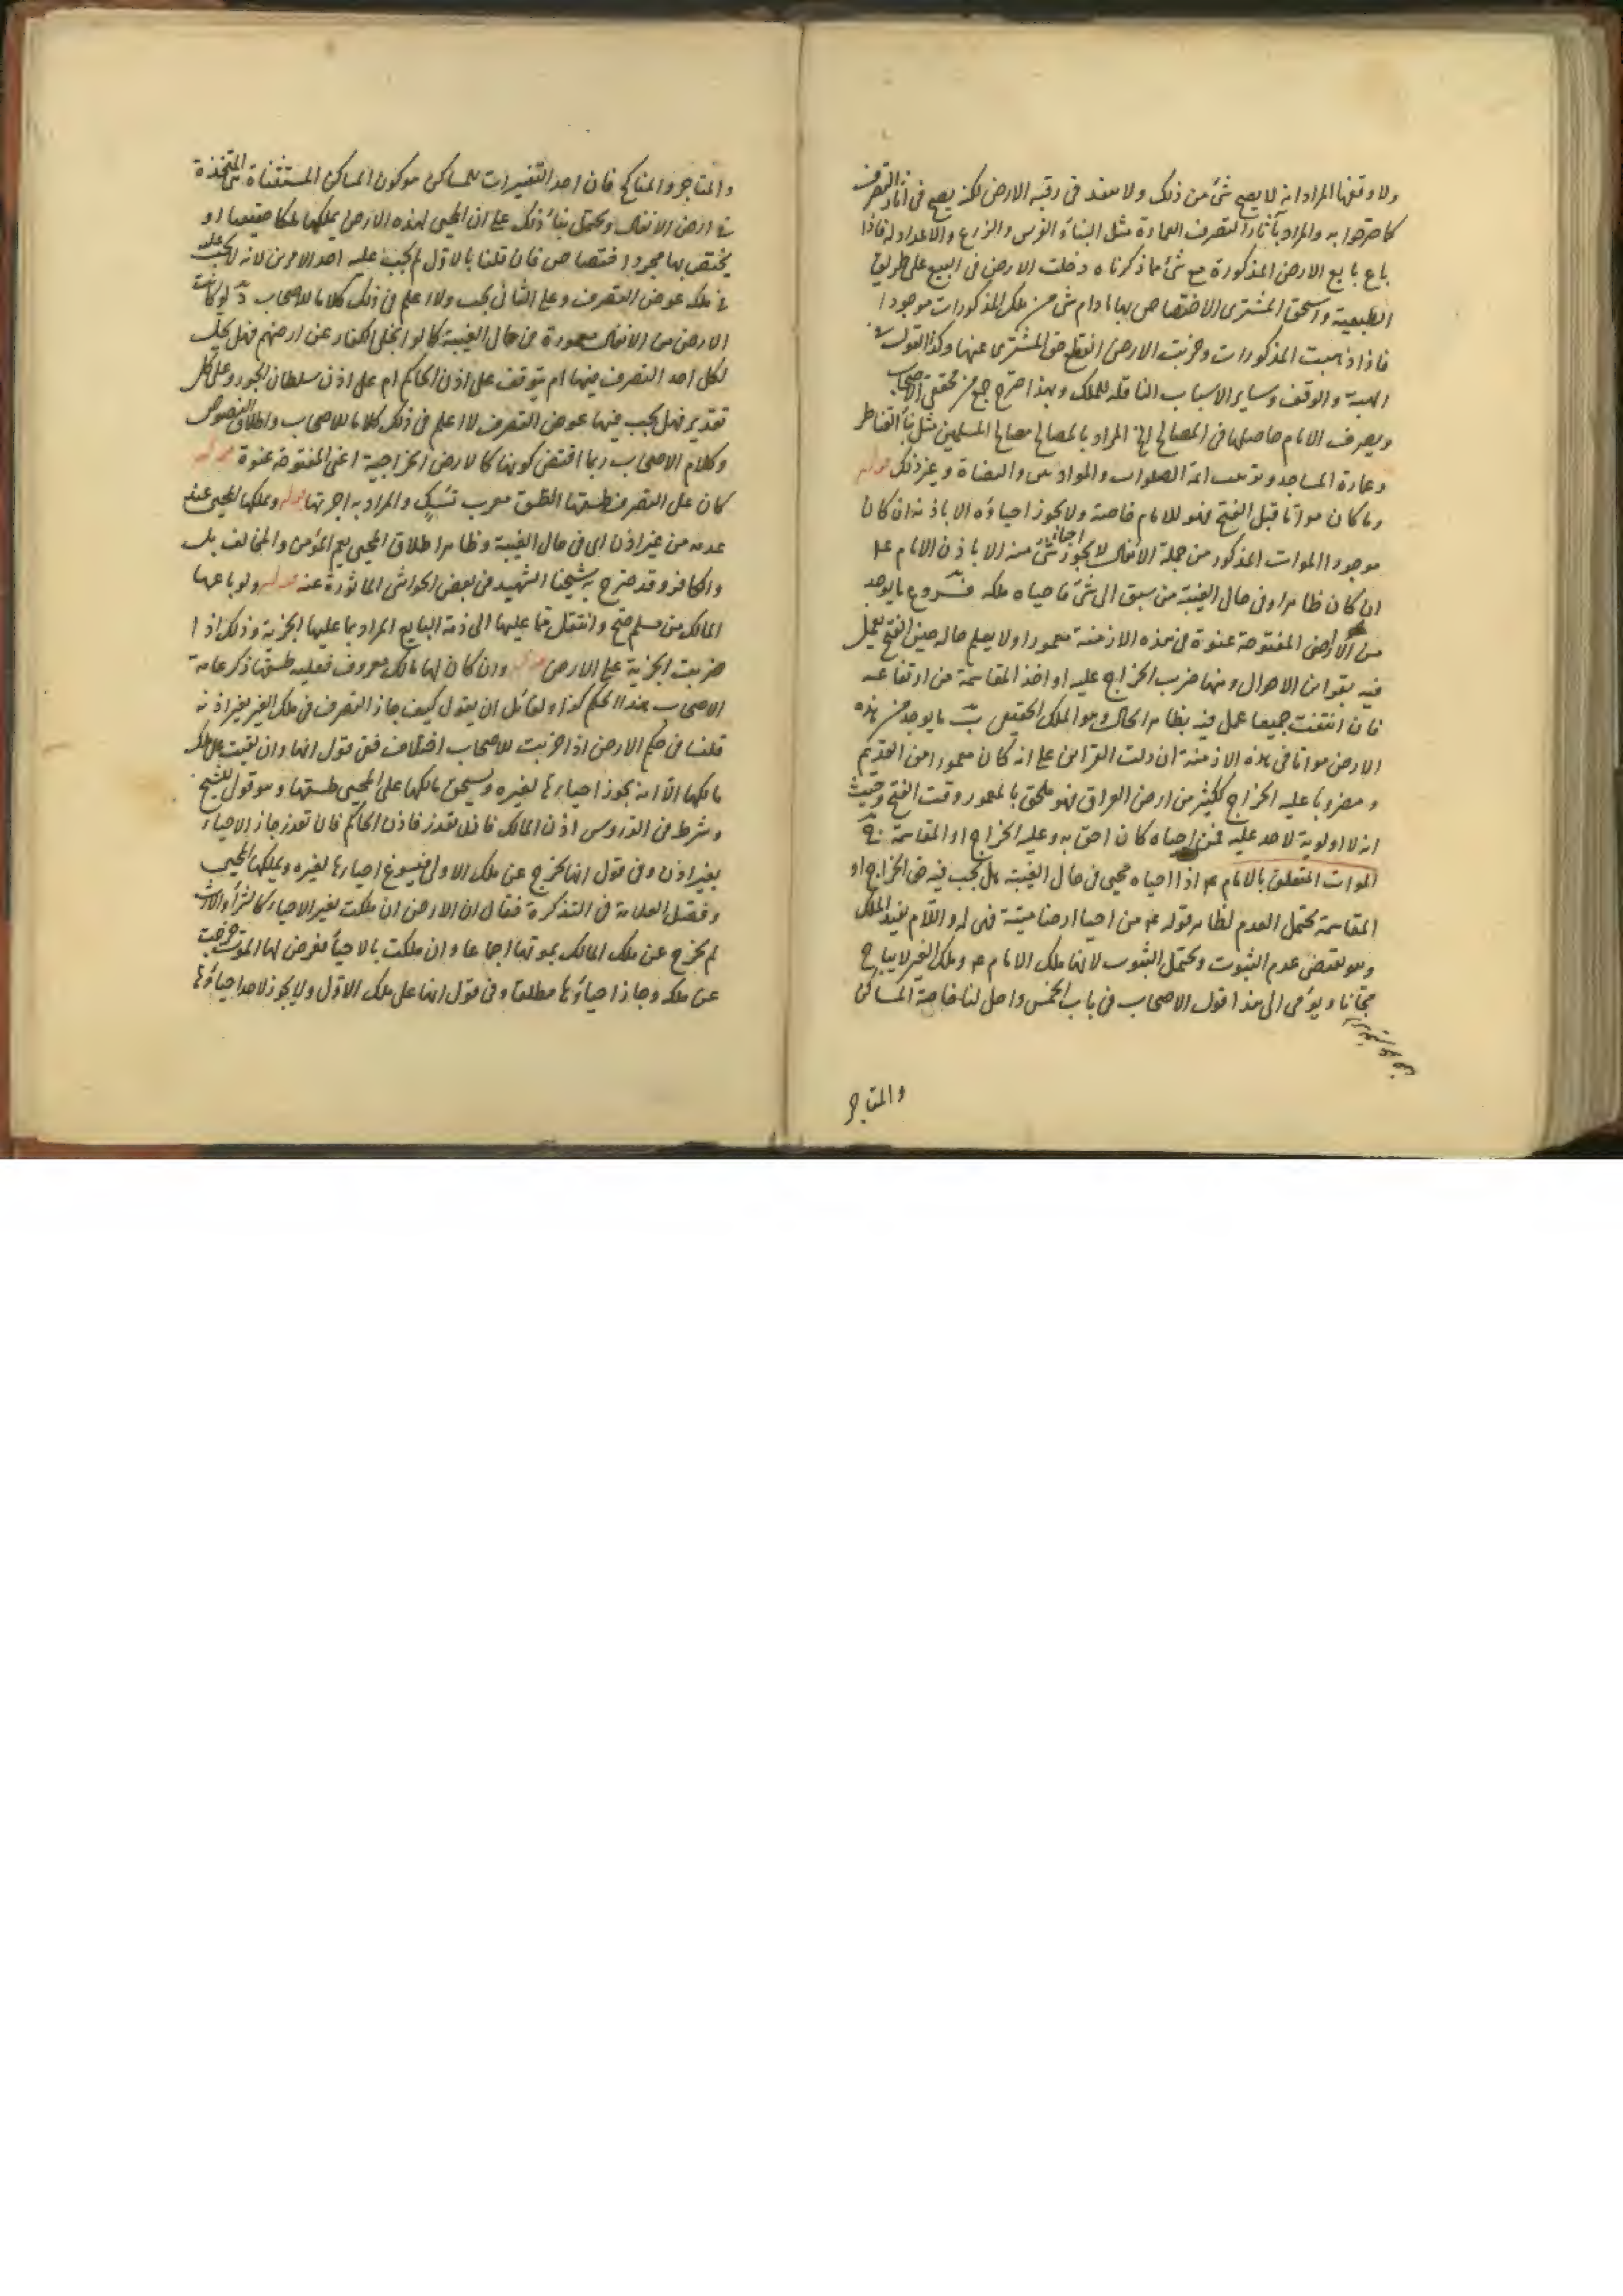 ولا وقفها المراد انه لا يصح شئ من ذلك ولا ينفذ فى رقبة الارض لكنه يصح فى آثار التصرف
كما صرحوا به والمراد بآثار التصرف العمارة مثل البناء والغرس والزرع والاعداد له فاذا
باع بايع الارض المذكورة مع شئ مما ذكرناه دخلت الارض فى البيع على طريق
التبعية واستحق المشترى الاختصاص بها ما دام شئ من ملك المذكورات موجودا
فاذا ذهبت المذكورات وخربت الارض انقطع حق المشترى عنها وكذا القول فى
الهبة والوقف وساير الاسباب الناقلة للملك وبهذا صرح جمع من محققى الاصحاب
ويصرف الامام حاصلها فى المصالح الخ المراد بالمصالح مصالح المسلمين مثل بناء القناطر
وعمارة المساجد وائمة الصلوات والقضاة وغير ذلك قوله
وما كان مواتا قبل الفتح فهو للامام خاصة ولا يجوز احياؤه الا باذنه ان كان
موجودا الموات المذكور من جملة الانفال لا يجوز احياء شئ منه الا باذن الامام ع
ان كان ظاهرا وفى حال الغيبة من سبق الى شئ فاحياه ملكه فروع ما يوجد
من الارض المفتوحة عنوة فى هذه الازمنة معمورا ولا يعلم حاله حين الفتح يعمل
فيه بقراين الاحوال ومنها ضرب الخراج عليه او اخذ المقاسمة من ارتفاعه
فان انتفت جميعا عمل فيه بظاهر الحال وهو الملك الحقيقى ب ما يوجد من هذه
الارض مواتا فى هذه الازمنة ان دلت القراين على انه كان معمورا من القديم
ومضروبا عليه الخراج ككثير من ارض العراق فهو ملحق بالمعمور وقت الفتح وحيث
انه لا اولوية لاحد عليه فمن احياه كان احق به وعليه الخراج او المقاسمة ج
الموات المتعلق بالامام ع اذا احياه محيى فى حال الغيبة هل يجب فيه حق الخراج او
المقاسمة يحتمل العدم لظاهر قوله ع من احيا ارضا ميتة فهى له واللام يفيد الملك
وهو يقتضى عدم الثبوت ويحتمل الثبوت لانها ملك الامام ع وملك الغير لا يباح
مجانا ويومى الى هذا قول الاصحاب فى باب الخمس واحل لنا خاصة المساكن
والمتاجر
والمتاجر والمناكح فان احد التفسيرات للمساكن هو كون المساكن المستثناة هى المتخذة
فى ارض الانفال ويحتمل بناء ذلك على ان المحيى لهذه الارض يملكها ملكا حقيقيا او
يختص بها مجرد اختصاص فان قلنا بالاول لم يجب عليه احد الامرين لانه لا يجب عليه
فى ملكه عوض التصرف وعلى الثانى يجب ولا اعلم فى ذلك كلاما للاصحاب د لو كانت
الارض من الانفال معمورة فى حال الغيبة كما لو انجلى الكفار عن ارضهم فهل يحل
لكل احد التصرف فيها ام يتوقف على اذن الحاكم ام على اذن سلطان الجور وعلى كل
تقدير فهل يجب فيها عوض التصرف لا اعلم فى ذلك كلاما للاصحاب واطلاق النصوص
وكلام الاصحاب ربما اقتضى كونها كالارض الخراجية اعنى المفتوحة عنوة قوله
كان على المتصرف طسقها الطسق معرب تشك والمراد به اجرتها قوله ويملكها المحيى عند
عدمه من غير اذن اى فى حال الغيبة وظاهر اطلاق المحيى يعم المؤمن والمخالف بل
والكافر وقد صرح به شيخنا الشهيد فى بعض الحواشى الماثورة عنه قوله ولو باعها
المالك من مسلم صح وانتقل ما عليها الى ذمة البايع المراد بما عليها الجزية وذلك اذا
ضربت الجزية على الارض قوله وان كان لها مالك معروف فعليه طسقها ذكر عامة
الاصحاب هذا الحكم كذا ولقائل ان يقول كيف جاز التصرف فى ملك الغير بغير اذنه
قلنا فى حكم الارض اذا خربت للاصحاب اختلاف ففى قول انها وان بقيت على ملك
مالكها الا انه يجوز احياءها لغيره ويستحق مالكها على المحيى طسقها وهو قول الشيخ
وشرط فى الدروس اذن المالك فان تعذر فاذن الحاكم فان تعذر جاز الاحياء
بغير اذن وفى قول انها تخرج عن ملك الاول فيسوغ احياءها لغيره ويملكها المحيى
وفصل العلامة فى التذكرة فقال ان الارض ان ملكت بغير الاحياء كالشراء والارث
لم تخرج عن ملك المالك بموتها اجماعا وان ملكت بالاحياء فعرض لها الموت خرجت
عن ملكه وجاز احياؤها مطلقا وفى قول انها على ملك الاول ولا يجوز لاحد احياؤها